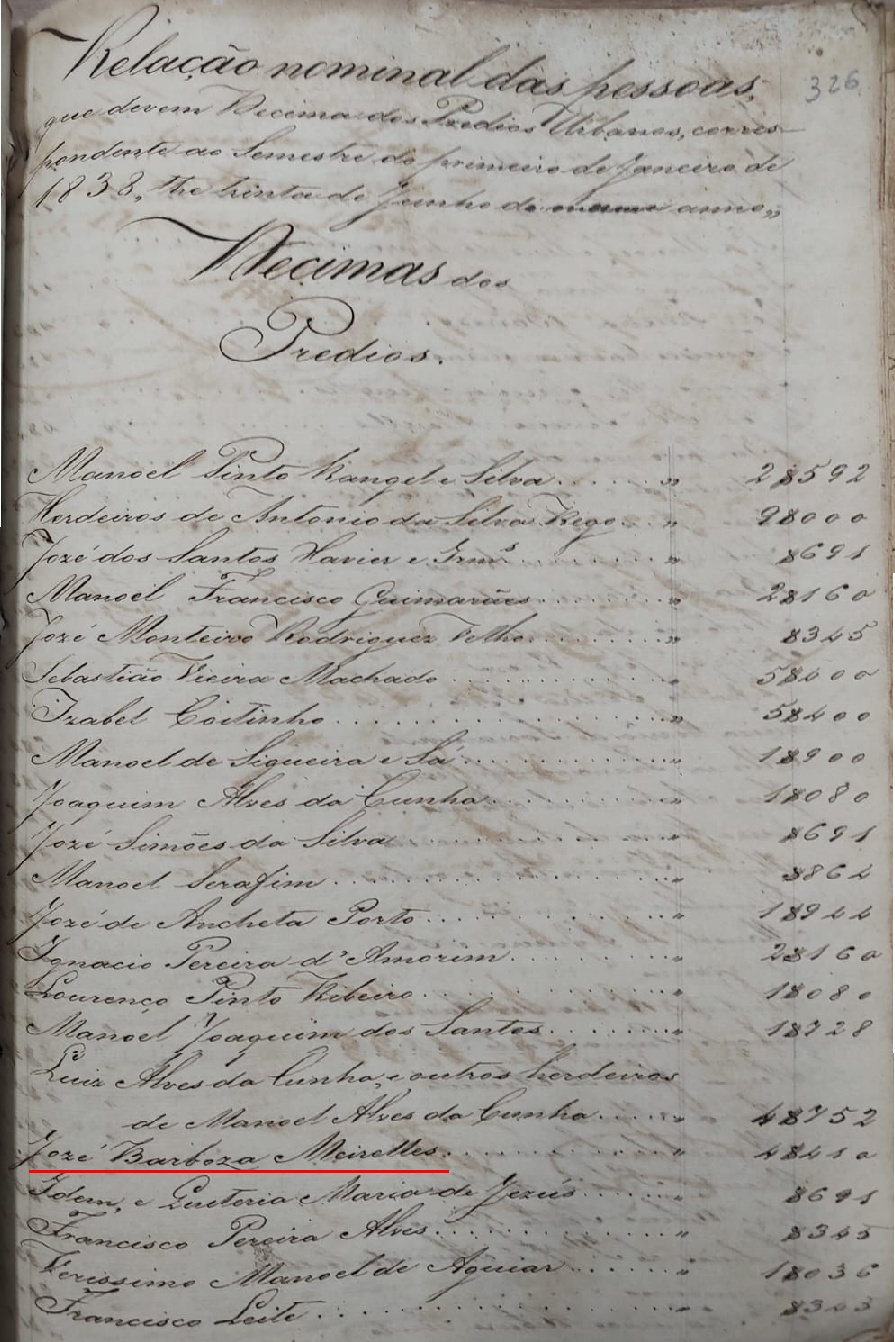 Relação nominal das pessoas,
326
que devem Decima dos Predios Urbanos, corres-
pondente ao Semestre do primeiro de Janeiro de
1838, the trinta de Junho do mesmo anno,,
Decimas dos
Predios.
Manoel Pinto Rangel e Silva . . . . . . " 2$592
Herdeiros de Antonio da Silva Rego . . " 9$000
Jozé dos Santos Xavier e Irmº . . . . . . . " $691
Manoel Francisco Guimarães . . . . . . . " 2$160
Jozé Monteiro Rodriguez Velho . . . . . . " $345
Sebastião Vieira Machado . . . . . . . . . " 5$400
Izabel Coitinho . . . . . . . . . . . . . . " 5$400
Manoel de Siqueira e Sá . . . . . . . . . . " 1$900
Joaquim Alves da Cunha . . . . . . . . . " 1$080
Jozé Simões da Silva . . . . . . . . . . . " $691
Manoel Serafim . . . . . . . . . . . . . . " $864
Jozé de Ancheta Porto . . . . . . . . . . . " 1$944
Ignacio Pereira d'Amorim . . . . . . . . . " 2$160
Lourenço Pinto Ribeiro . . . . . . . . . . " 1$080
Manoel Joaquim dos Santos . . . . . . . " 1$728
Luiz Alves da Cunha, e outros herdeiros
de Manoel Alves da Cunha . . . . " 4$752
Jozé Barboza Meirelles . . . . . . . . . . " 4$840
Idem, e Quiteria Maria de Jezús . . . . . . " $691
Francisco Pereira Alves . . . . . . . . . . " $345
Verissimo Manoel de Aguiar . . . . . . . . " 1$036
Francisco Leite . . . . . . . . . . . . . . " $345